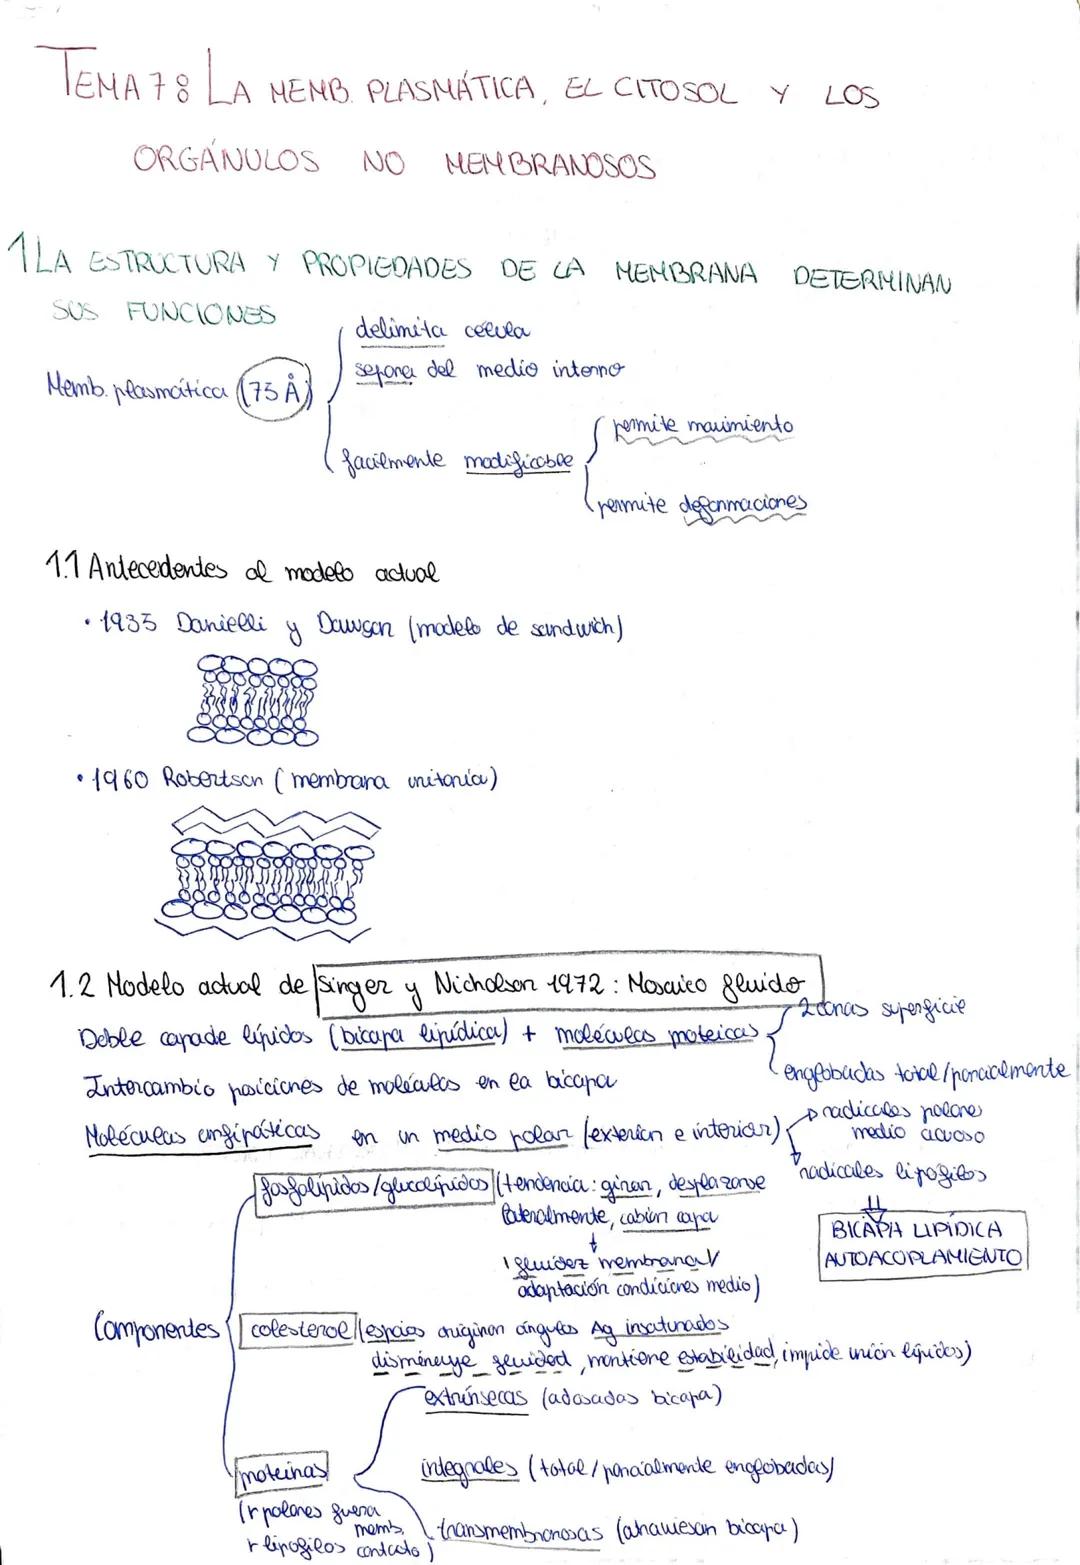 TEMA 7: LA MEMB. PLASMÁTICA, EL CITOSOL Y LOS
ORGÁNULOS NO MEMBRANOSOS
1 LA ESTRUCTURA Y PROPIEDADES DE LA MEMBRANA DETERMINAN
SUS FUNCIONES
Memb. plasmática (75 Å)
delimita célula
separa del medio interno
facilmente modificable
permite movimiento
permite deformaciones
1.1 Antecedentes al modelo actual
• 1935 Danielli y Dawson (modelo de sandwich)
• 1960 Robertson (membrana unitaria)
1.2 Modelo actual de Singer y Nicholson 1972: Mosaico fluido
Doble capa de lípidos (bicapa lipídica) + moléculas proteicas
2 zonas superficie
englobadas total/parcialmente
Intercambio posiciones de moléculas en la bicapa
Moléculas anfipáticas en un medio polar (exterior e interior)
radicales polares
medio acuoso
radicales lipofilos
BICAPA LIPÍDICA
AUTOACOPLAMIENTO
Componentes
fosfolípidos/glucolípidos (tendencia: girar, desplazarse
lateralmente, cabiun capa
fluidez membrana
adaptación condiciones medio)
colesterol (espacios originan ángulos Ag insaturados
disminuye fluided, mantiene estabilidad, impide unión lípidos)
proteinas
(r polares fuera
memb.
r lipofilos contacto)
extrínsecas (adosadas bicapa)
integrales (total/parcialmente englobadas)
transmembranosas (atraviesan bicapa)